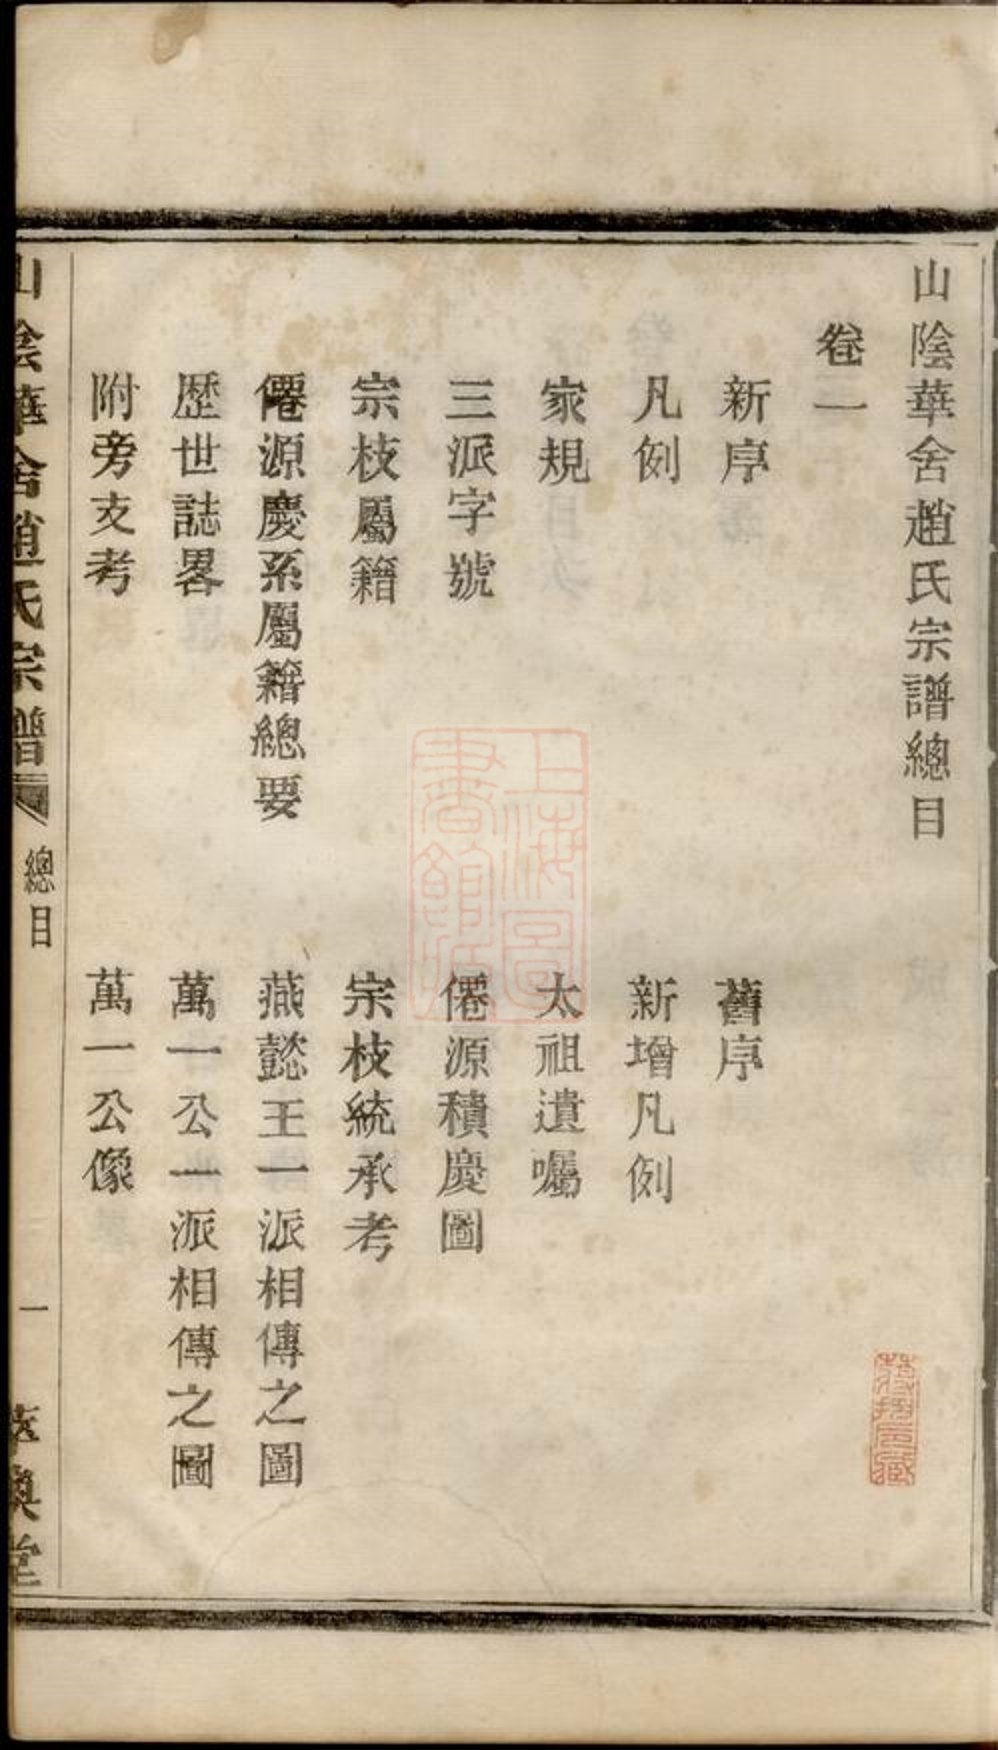 山陰華舍趙氏宗譜總目
卷一
新序
舊序
凡例
新增凡例
家規
太祖遺囑
三派字號
僊源積慶圖
宗枝屬籍
宗枝統承考
僊源慶系屬籍總要
燕懿王一派相傳之圖
歷世誌畧
萬一公一派相傳之圖
附旁支考
萬一公像
山陰華舍趙氏宗譜
總目
一
萃奐堂
上海圖書館藏